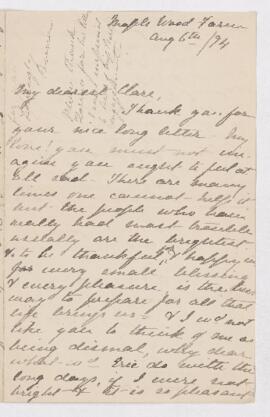 Maple Wood Farm
Aug 6th /94
My dearest Clare,
Thank you for
your nice long letter. My
love! you must not im-
agine you ought to feel at
all sad - There are many
times one cannot help it
but the people who have
really had most trouble
usually are the brightest
& to be thankful, & happy in
for every small blessing
& every pleasure, is the
way to prepare for all that
life brings us - & I wd not
like you to think of me as
being dismal, why dear
what wd Eric do with the
long days, if I were not
bright & it is so pleasant